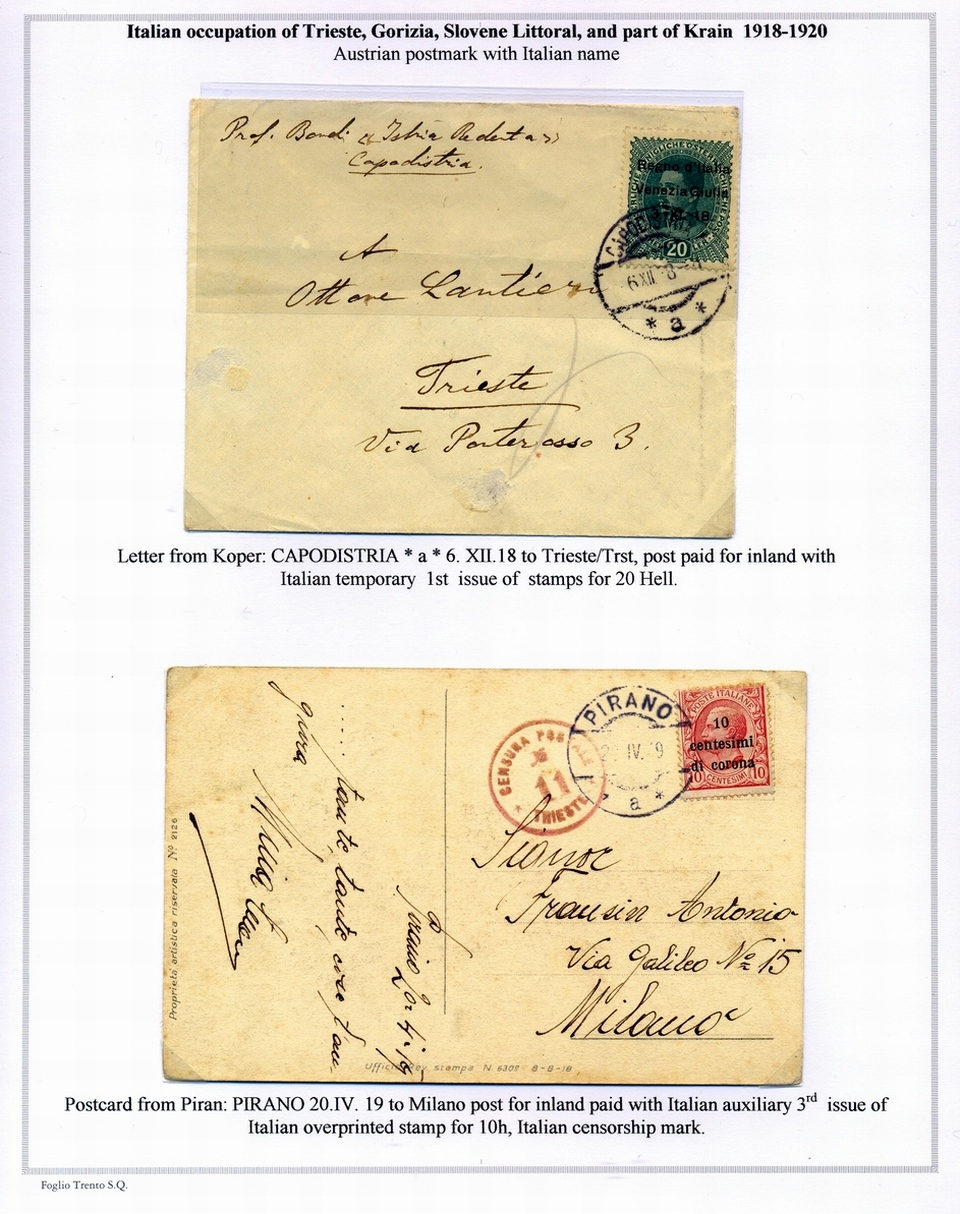 Italian occupation of Trieste, Gorizia, Slovene Littoral, and part of Krain 1918-1920
Austrian postmark with Italian name
Prof. Bondi «Istria Redenta»
Capodistria.
Regno d'Italia
Venezia Giulia
3. XI. 18.
20
CAPODISTRIA
6 XII 18
* a *
A
Ottone Lantieri
Trieste
Via Ponterosso 3.
Letter from Koper: CAPODISTRIA * a * 6. XII.18 to Trieste/Trst, post paid for inland with
Italian temporary 1st issue of stamps for 20 Hell.
PIRANO
IV. 19
a *
POSTE ITALIANE
10
centesimi
di corona
10 CENTESIMI 10
CENSURA POSTALE
11
* TRIESTE
Signor
Frausin Antonio
Via Galileo No 15
Milano
Pirano 20. 4. 19
tante tante cose
Proprietà artistica riservata No 2126
Uffici Rev. stampa N. 6309 8-8-18
Postcard from Piran: PIRANO 20.IV. 19 to Milano post for inland paid with Italian auxiliary 3rd issue of
Italian overprinted stamp for 10h, Italian censorship mark.
Foglio Trento S.Q.